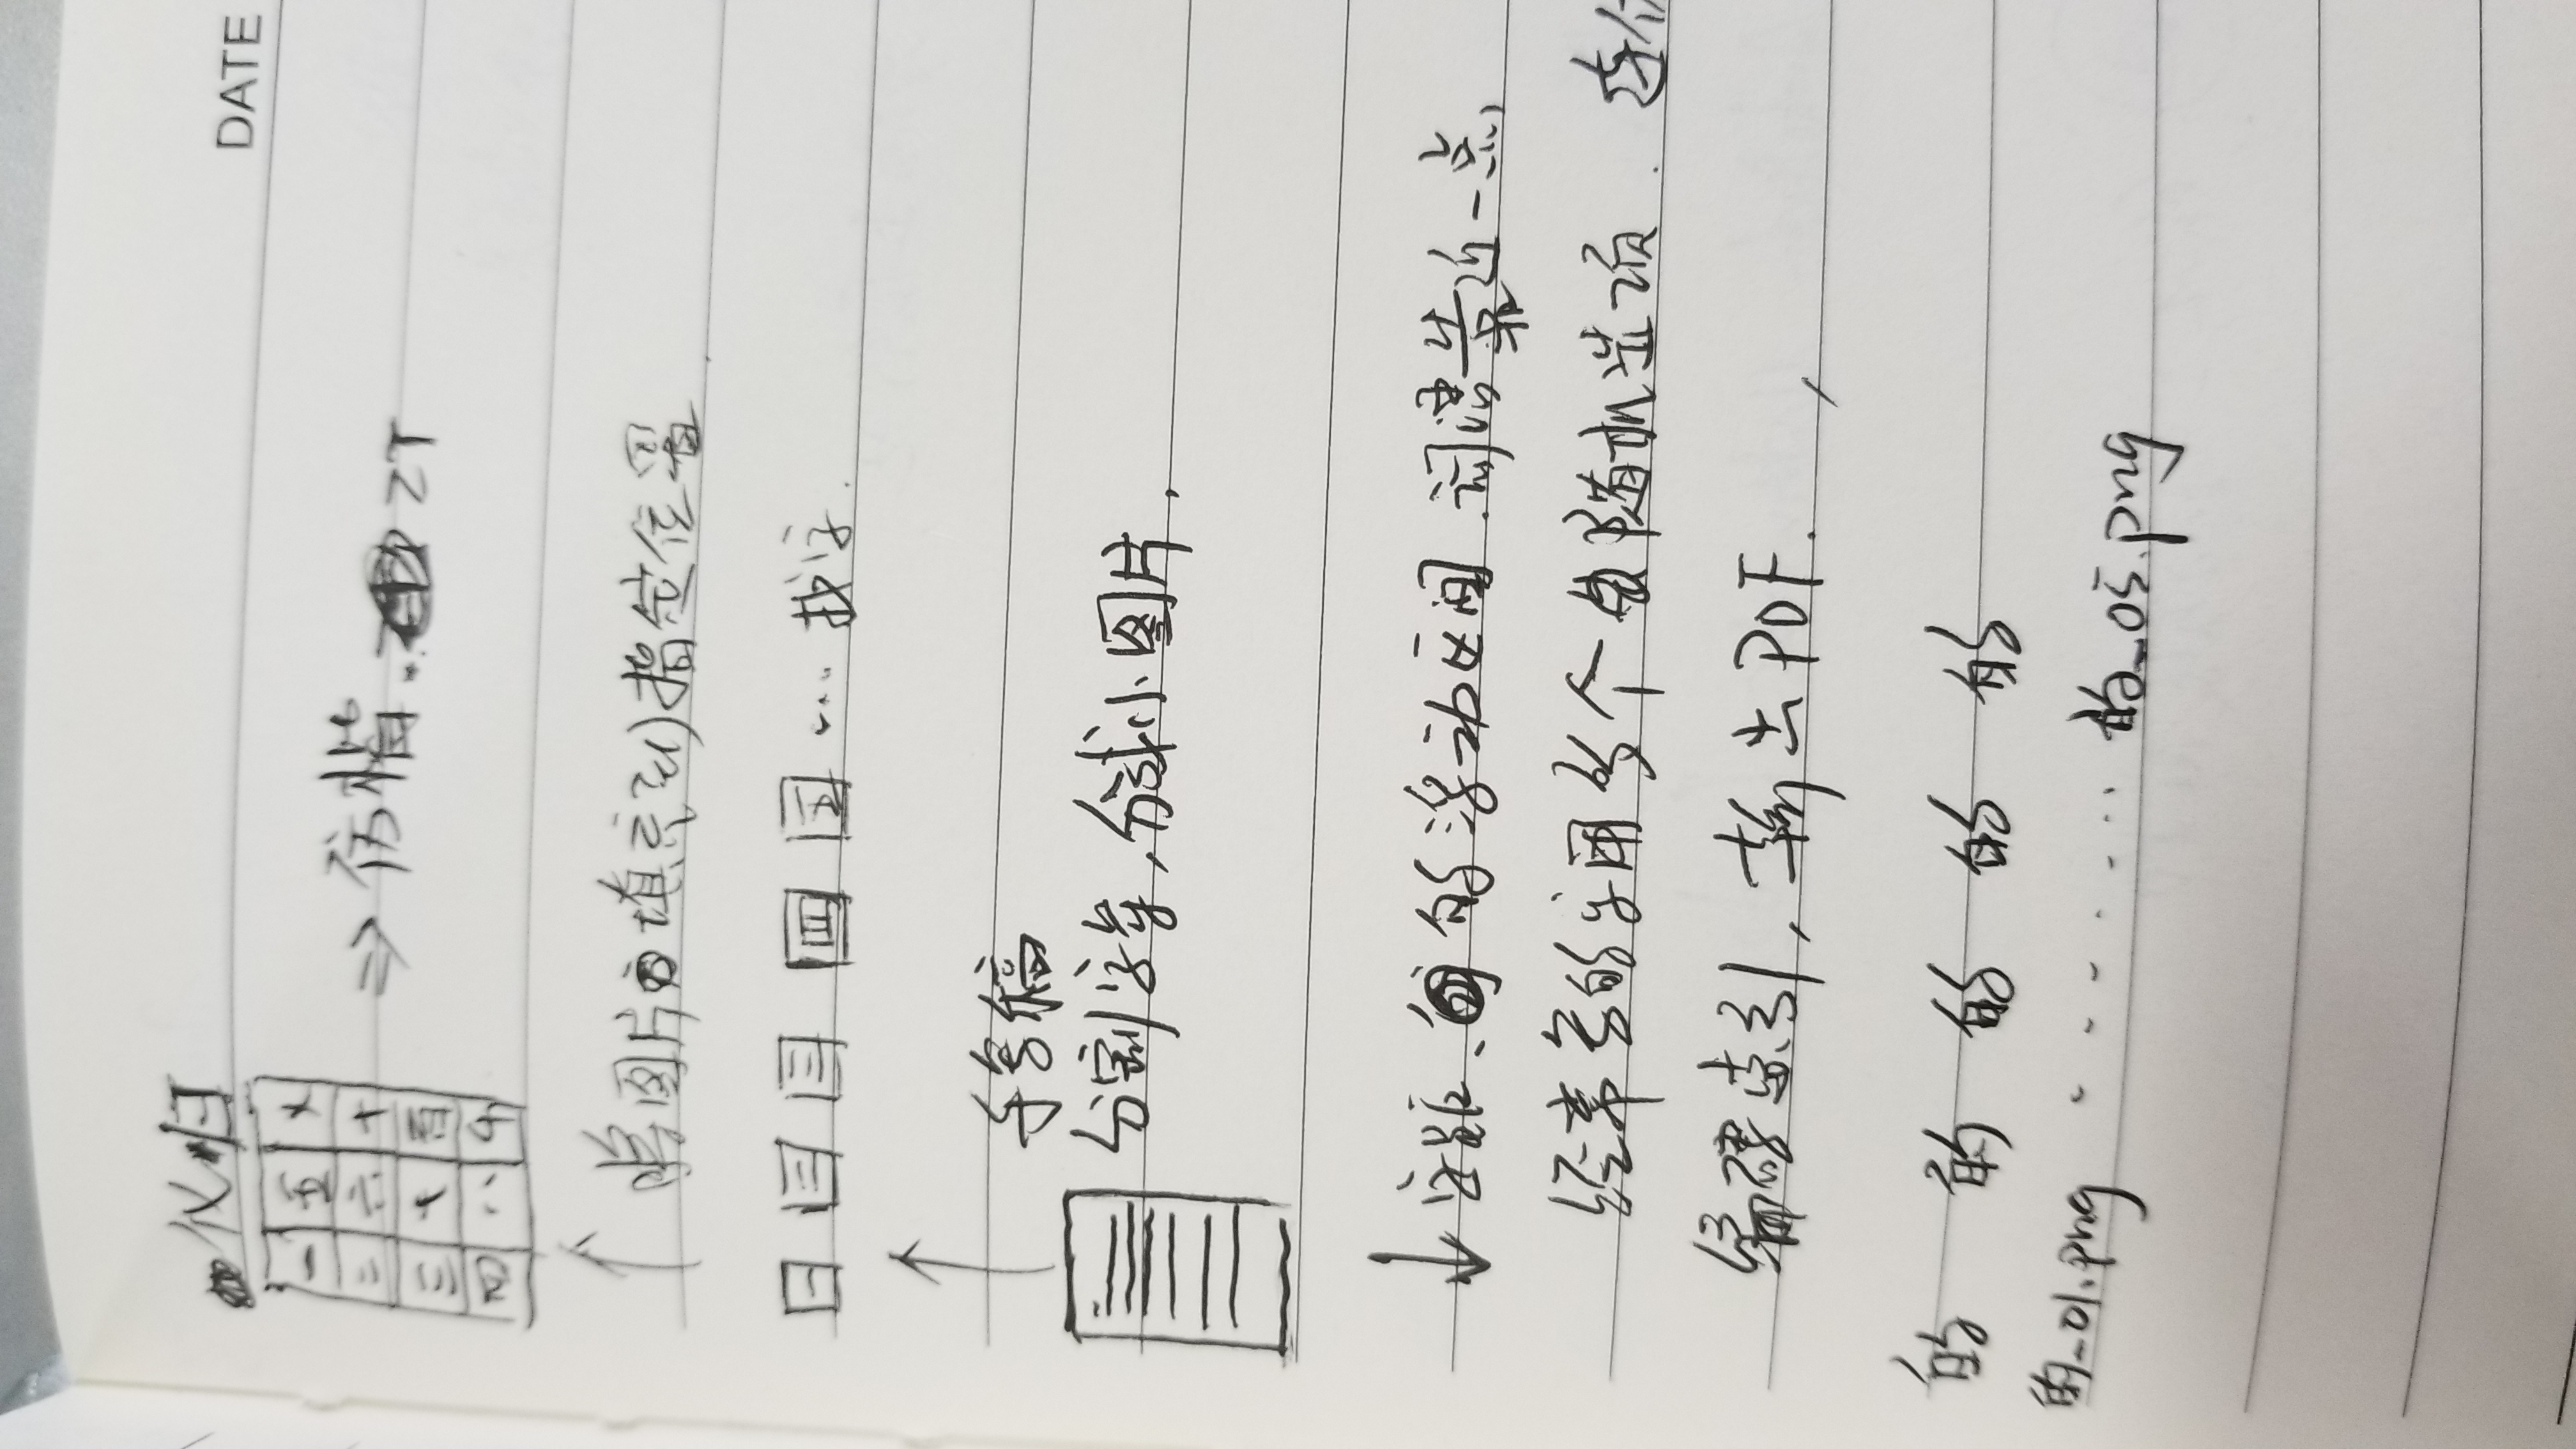 仪归
DATE
一 五 九
二 六 十
三 七 百
四 八 千
⇒ 仿楷. ZT
↑ 将图片填充到指定位置
一 二 三 四 五 … 找字.
↑
手写稿
分割字符,分成小图片,
↓ 字距、的浮动区间.词语靠近一点,
经常写的字用多个随机选项.
编码索引,输出PDF.
的 的 的 的 的
的_01.png ...... 的_05.png